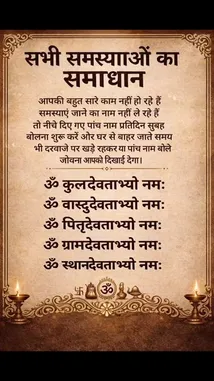 सभी समस्यााओं का
समाधान
आपकी बहुत सारे काम नहीं हो रहे हैं
समस्याएं जाने का नाम नहीं ले रहे हैं
तो नीचे दिए गए पांच नाम प्रतिदिन सुबह
बोलना शुरू करें ओर घर से बाहर जाते समय
भी दरवाजे पर खड़े रहकर या पांच नाम बोले
जोवना आपको दिखाई देगा।
ॐ कुलदेवताभ्यो नमः
ॐ वास्तुदेवताभ्यो नमः
ॐ पितृदेवताभ्यो नमः
ॐ ग्रामदेवताभ्यो नमः
ॐ स्थानदेवताभ्यो नमः
ॐ